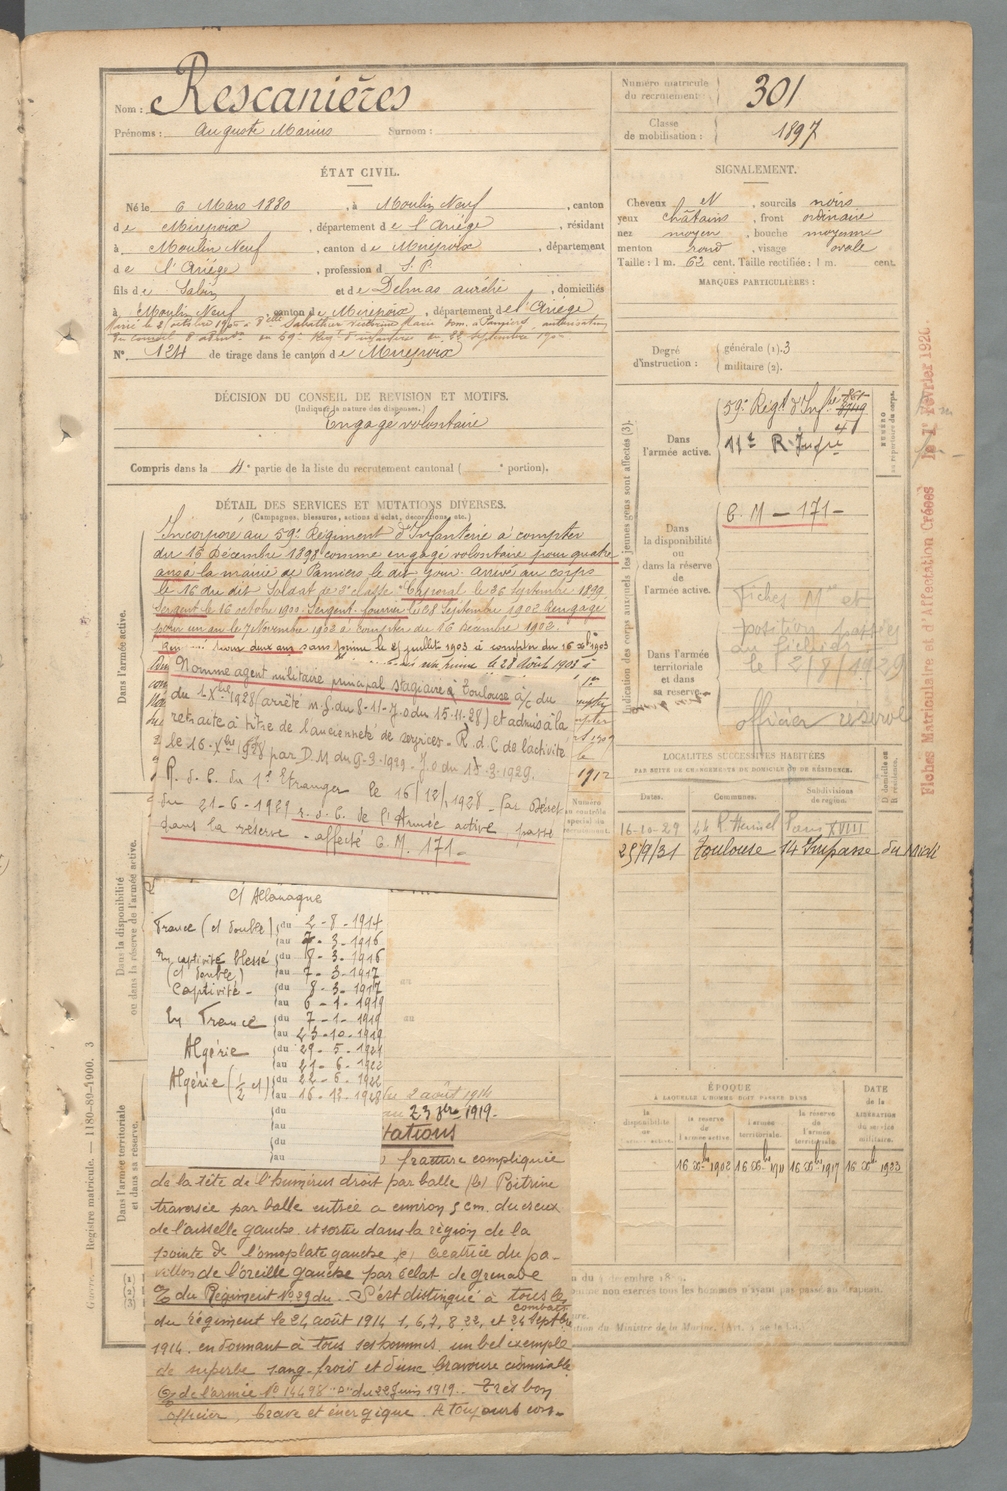 Nom : Rescanières
Prénoms : Auguste Marius Surnom :
Numéro matricule du recrutement 301
Classe de mobilisation : 1897
ÉTAT CIVIL.
Né le 6 Mars 1880, à Moulin Neuf, canton
de Mirepoix, département de l'Ariège, résidant
à Moulin Neuf, canton de Mirepoix, département
de l'Ariège, profession d S. P.
fils de et de Delmas Aurélie, domiciliés
à Moulin Neuf, canton de Mirepoix, département de l'Ariège
Marié le 2 octobre 1905 à Dlle Sabathier dom. à Pamiers, autorisation
du conseil d'admon du 59e Regt d'infanterie du 22 Septembre
N° 124 de tirage dans le canton de Mirepoix
SIGNALEMENT.
Cheveux N, sourcils noirs
yeux châtains, front ordinaire
nez moyen, bouche moyenne
menton rond, visage ovale
Taille : 1 m. 62 cent. Taille rectifiée : 1 m. cent.
MARQUES PARTICULIÈRES :
Degré d'instruction : générale (1). 3
militaire (2).
DÉCISION DU CONSEIL DE REVISION ET MOTIFS.
(Indiquer la nature des dispenses.)
Engagé volontaire
Compris dans la 4e partie de la liste du recrutement cantonal ( e portion).
DÉTAIL DES SERVICES ET MUTATIONS DIVERSES.
(Campagnes, blessures, actions d'éclat, décorations, etc.)
Dans l'armée active.
Incorporé au 59e Régiment d'Infanterie à compter
du 16 Décembre 1898 comme engagé volontaire pour quatre
ans à la mairie de Pamiers le dit jour. Arrivé au corps
le 16 du dit Soldat de 2e classe. Caporal le 26 Septembre 1899.
Sergent le 16 octobre 1900. Sergent fourrier le 28 Septembre 1902 Rengagé
pour un an le 7 Novembre 1902 à compter du 16 Décembre 1902.
pour deux ans sans prime le 25 juillet 1903 à compter du 16 Xbre 1903
sans prime le 28 Août 1905 à
Nommé agent militaire principal stagiaire à Toulouse à/c du
du 1 Xbre 1928 (arrêté m.g. du 8-11- J.O du 15-11-28) et admis à la
retraite à titre de l'ancienneté de services - R. d. C de l'activité
le 16-Xbre 1928 par D.M du 6-3-1929 - J.O du 15-3-1929.
R. d. C. du 1er Etranger le 16/12/1928 - Par Décret
du 21-6-1929 r. d. C. de l'Armée active, passe
dans la réserve - affecté C. M. 171 -
1912
Indication des corps auxquels les jeunes gens sont affectés (3).
Dans l'armée active.
59e Régt d'Infrie
11e R. Infrie
NUMÉRO au répertoire du corps.
Dans la disponibilité ou dans la réserve de l'armée active.
C. M - 171 -
Dans l'armée territoriale et dans sa réserve.
Fiches Mle et
position
le 12/8/1929
officier réserve
Fiches Matriculaire et d'Affectation Créées le 1er Février 1920.
LOCALITÉS SUCCESSIVES HABITÉES
PAR SUITE DE CHANGEMENTS DE DOMICILE OU DE RÉSIDENCE.
Dates. Communes. Subdivisions de région. D. domicile ou R. résidence.
16-10-29 Paris XVIII
25/9/31 Toulouse 14 Impasse du Midi
Numéro au contrôle spécial du recrutement.
Dans la disponibilité ou dans la réserve de l'armée active.
c/ Allemagne
France (ct double) du 2-8-1914
au 7-3-1916
En captivité blessé du 8-3-1916
(ct double) au 7-3-1917
Captivité - du 8-3-1917
au 6-1-1919
En France du 7-1-1919
au 23-10-1919
Algérie du 29-5-1921
au 21-6-1922
Algérie (1/2 ct) du 22-6-1922
au 16-12-1928
du
au
du
au
2 août 1914
au 23 8bre 1919.
tations
fracture compliquée
de la tête de l'humérus droit par balle (b) Poitrine
traversée par balle entrée à environ 5 cm. du creux
de l'aisselle gauche et sortie dans la région de la
pointe de l'omoplate gauche c) Cicatrice du pa-
villon de l'oreille gauche par éclat de grenade
du Régiment N° 29 du S'est distingué à tous les
combats
du régiment le 24 août 1914 1, 6, 7, 8 22, et 24 Septbre
1914, en donnant à tous ses hommes, un bel exemple
de superbe sang-froid et d'une bravoure admirable
de l'armée N° 14498 "D" du 22 Juin 1919. Très bon
officier, brave et énergique. A toujours con-
Dans l'armée territoriale et dans sa réserve.
ÉPOQUE
À LAQUELLE L'HOMME DOIT PASSER DANS
la disponibilité
la réserve de l'armée active.
l'armée territoriale.
la réserve de l'armée territoriale.
DATE de la LIBÉRATION du service militaire.
16 Xbre 1902 16 Xbre 1911 16 Xbre 1917 16 Xbre 1923
Registre matricule. — 1180-89-1900. 3